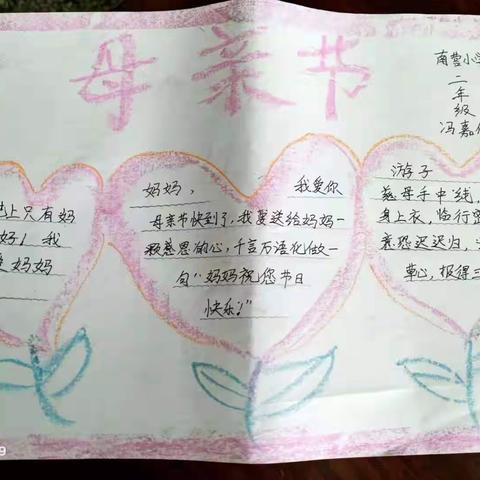 母亲节
南营小学
二
年
级
冯嘉
世上只有妈
好！我
妈妈
妈妈，我爱你
母亲节快到了，我要送给妈妈一
颗感恩的心，千言万语化做一
句“妈妈祝您节日
快乐！”
游子
慈母手中线，
身上衣，临行密
意恐迟迟归，
草心，报得三